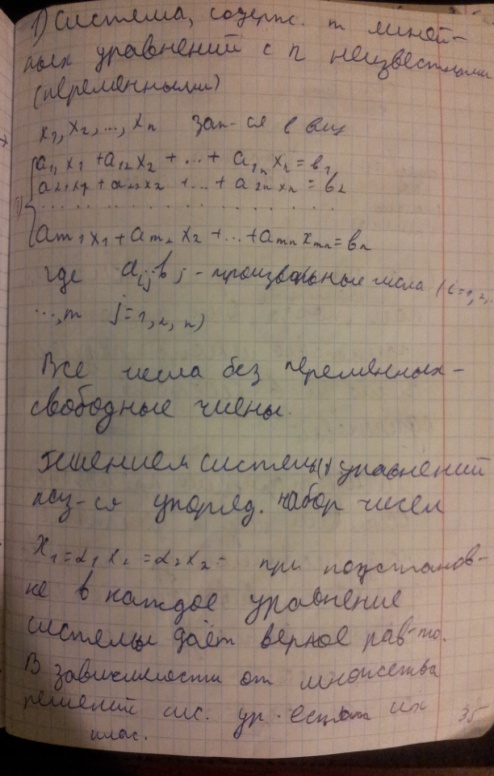 1) Система, содерж. m линей-
ных уравнений с n неизвестными
(переменными)
x₁, x₂, ..., xₙ зап-ся в виде
a₁₁x₁ + a₁₂x₂ + ... + a₁ₙxₙ = b₁
a₂₁x₁ + a₂₂x₂ + ... + a₂ₙxₙ = b₂
. . . . . . . . . . . . . . . . . .
aₘ₁x₁ + aₘ₂x₂ + ... + aₘₙxₘₙ = bₙ
где aᵢⱼ bⱼ - произвольные числа (i=1,2,
..., m j=1,2,n)
Все числа без переменных -
свободные члены.
Решением системы (1) уравнений
наз-ся упоряд. набор чисел
x₁=α₁ x₂=α₂ x₂= при подстанов-
ке в каждое уравнение
системы даёт верное рав-то.
В зависимости от множества
решений сис. ур. есть их
клас.
35